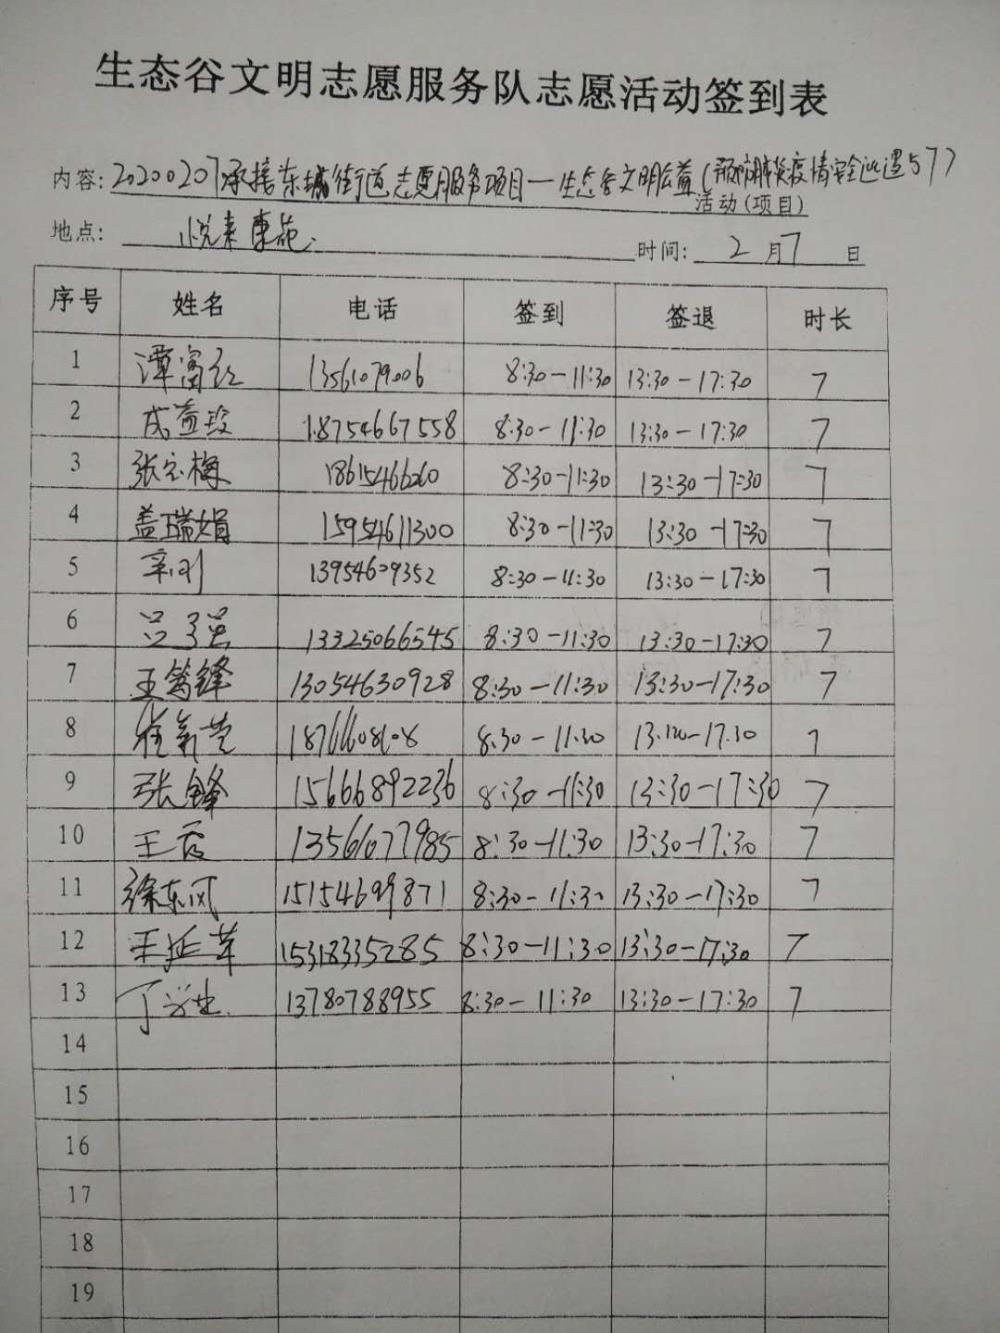 生态谷文明志愿服务队志愿活动签到表
内容: 20200207承接东城街道志愿服务项目—生态谷文明公益(预防肺炎疫情安全巡逻577
活动(项目)
地点: 悦来康苑.
时间: 2月7日
序号 姓名 电话 签到 签退 时长
1 谭富红 13561079006 8:30-11:30 13:30-17:30 7
2 成益玲 18754667558 8:30-11:30 13:30-17:30 7
3 张立梅 18615466260 8:30-11:30 13:30-17:30 7
4 盖瑞娟 15954611300 8:30-11:30 13:30-17:30 7
5 辛刚 13954609352 8:30-11:30 13:30-17:30 7
6 吕子英 13325066545 8:30-11:30 13:30-17:30 7
7 王笃锋 13054630928 8:30-11:30 13:30-17:30 7
8 8:30-11:30 13:30-17:30 7
9 张锋 15666892236 8:30-11:30 13:30-17:30 7
10 王 13561077985 8:30-11:30 13:30-17:30 7
11 徐东风 15154699871 8:30-11:30 13:30-17:30 7
12 王延苹 15318335285 8:30-11:30 13:30-17:30 7
13 丁 13780788955 8:30-11:30 13:30-17:30 7
14
15
16
17
18
19